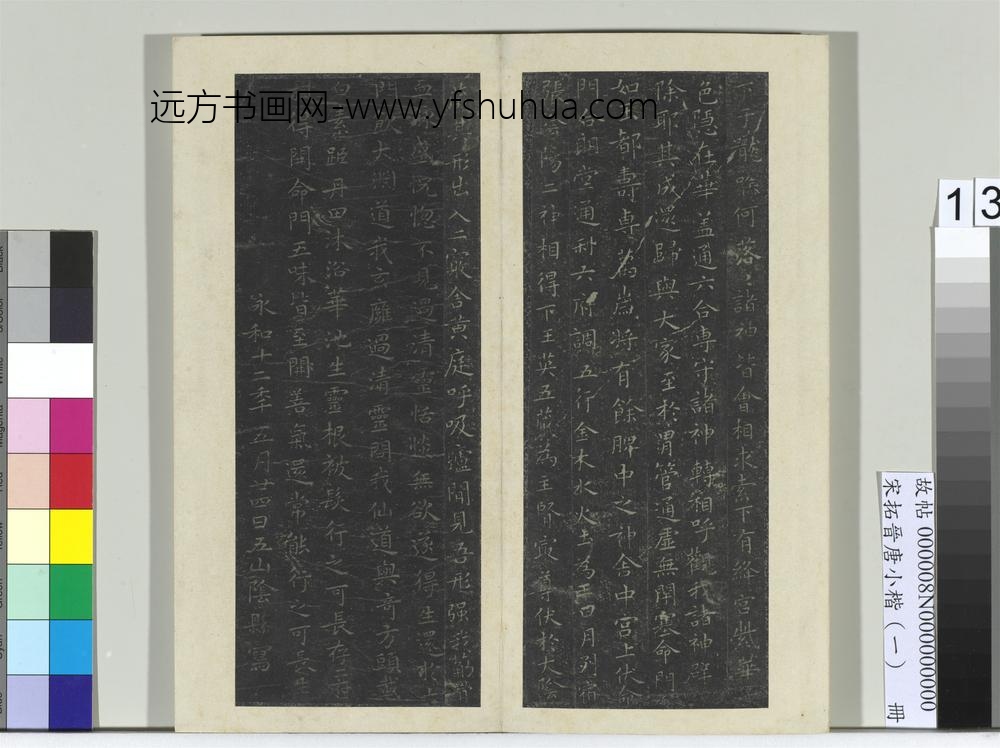 远方书画网-www.yfshuhua.com
下于龍隂何落〻諸神皆會相求索下有絳宮紫華
色隱在華盖通六合専守諸神轉相呼觀我諸神辟
除耶其成還歸與大家至於胃管通虛無閉塞命門
如玉都壽専萬歲将有餘脾中之神舎中宮上伏命
門合明堂通利六府調五行金木水火土為王日月列宿
張陰陽二神相得下玉英五藏為主腎最尊伏於大陰
形出入二竅舎黄庭呼吸廬間見吾形强我筋骨
血脉盛恍惚不見過清靈恬惔無欲遂得生還於
門飲大淵道我玄廱過清靈問我仙道與奇方頭
白素距丹田沐浴華池生靈根被髪行之可長存
得開命門五味皆至開善氣還常能行之可長生
永和十二年五月廿四日五山陰縣寫
13
故帖 000008N000000000
宋拓晉唐小楷（一） 冊